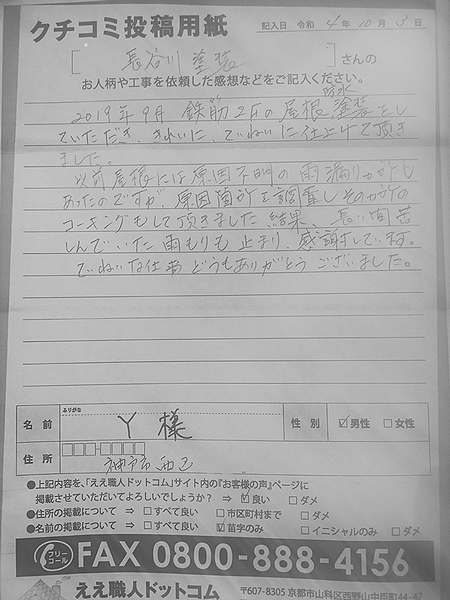 クチコミ投稿用紙
記入日 令和 4年 10月 3日
[ 長谷川 塗装 ] さんの
お人柄や工事を依頼した感想などをご記入ください。
防水
2019年9月 鉄筋2Fの屋根塗装をし
ていただき、きれいに、ていねいに仕上げて頂き
ました。
以前屋根には原因不明の雨漏りカ所も
あったのですが 原因箇所を調査しそのカ所の
コーキングもして頂きました 結果、長い間苦
しんでいた雨もりも止まり、感謝しています。
ていねいな仕事 どうもありがとう ございました。
ふりがな
名前 Y 様 性別 ☑男性 □女性
住所 神戸市 西区
●上記内容を、「ええ職人ドットコム」サイト内の『お客様の声』ページに
掲載させていただいてよろしいでしょうか? ⇒ ☑良い □ダメ
●住所の掲載について ⇒ □すべて良い □市区町村まで □ダメ
●名前の掲載について ⇒ □すべて良い ☑苗字のみ □イニシャルのみ □ダメ
フリーコール FAX 0800-888-4156
ええ職人ドットコム 〒607-8305 京都市山科区西野山中臣町44-47